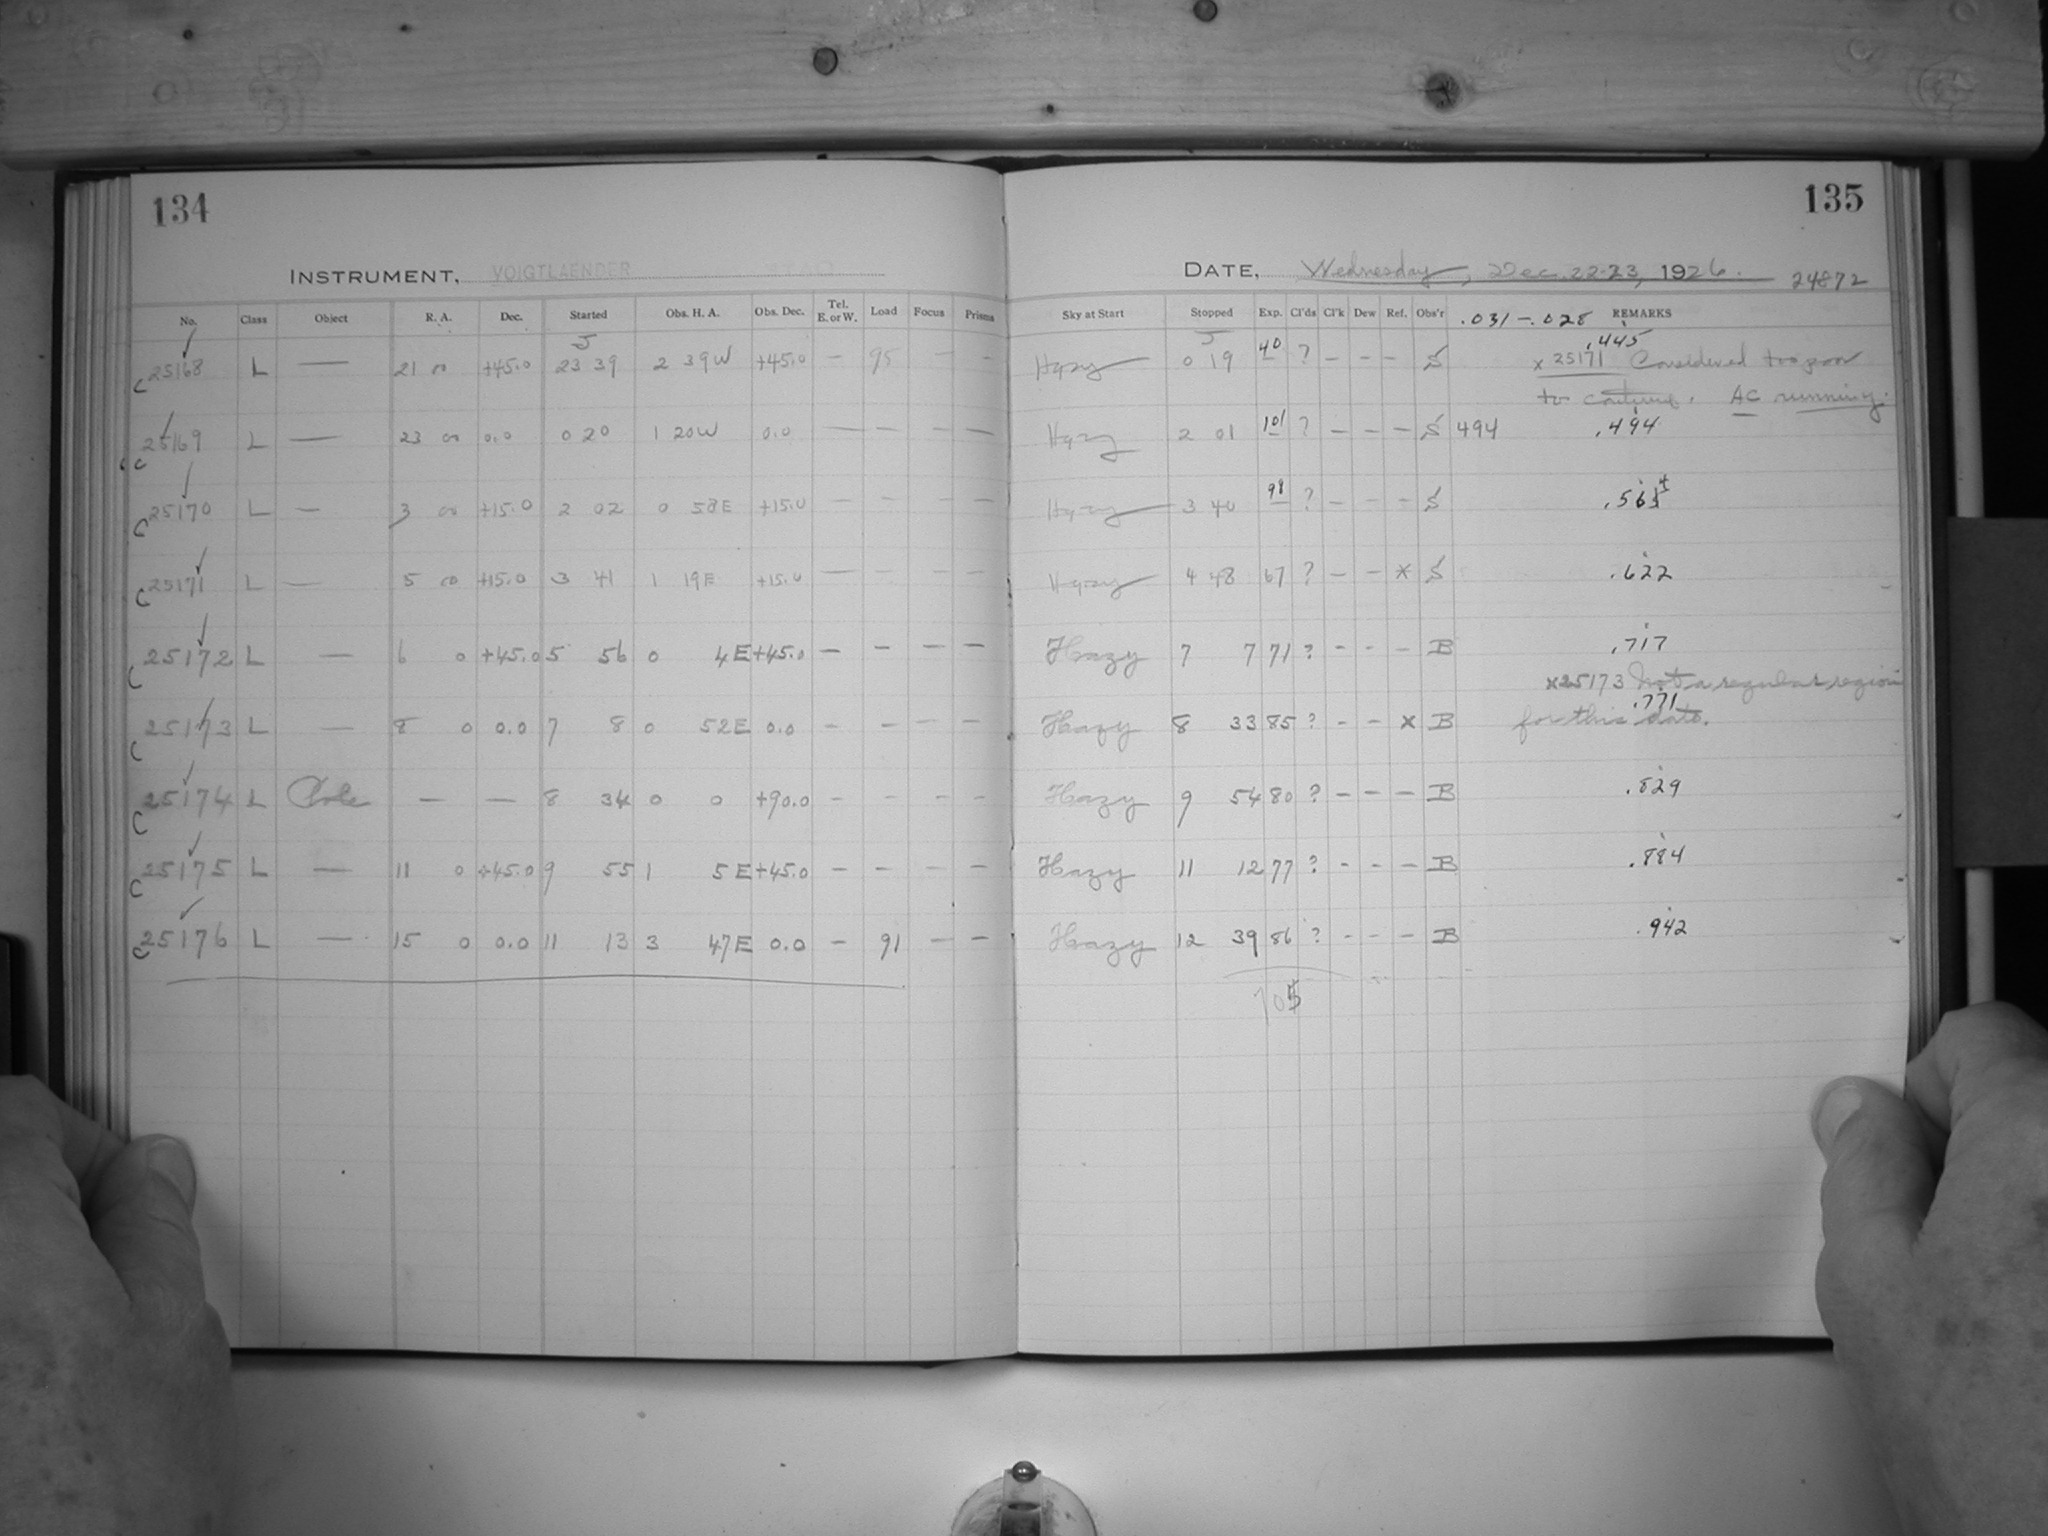 134
INSTRUMENT, VOIGTLAENDER
No. Class Object R. A. Dec. Started Obs. H. A. Obs. Dec. Tel. E. or W. Load Focus Prisms
C 25168 L — 21 00 +45.0 23 39 2 39W +45.0 — 95 — —
C 25169 L — 23 00 0.0 0 20 1 20W 0.0 — — — —
C 25170 L — 3 00 +15.0 2 02 0 58E +15.0 — — — —
C 25171 L — 5 00 +15.0 3 41 1 19E +15.0 — — — —
C 25172 L — 6 0 +45.0 5 56 0 4E +45.0 — — — —
C 25173 L — 8 0 0.0 7 8 0 52E 0.0 — — — —
C 25174 L Pole — — 8 34 0 0 +90.0 — — — —
C 25175 L — 11 0 +45.0 9 55 1 5E +45.0 — — — —
C 25176 L — 15 0 0.0 11 13 3 47E 0.0 — 91 — —
135
DATE, Wednesday, Dec. 22-23, 1926. 24872
Sky at Start Stopped Exp. Cl'ds Cl'k Dew Ref. Obs'r .031 – .028 REMARKS
.445
Hazy 0 19 40 ? — — — S x 25171 Considered too poor
to continue. AC running.
Hazy 2 01 101 ? — — — S 494 .494
Hazy 3 40 98 ? — — — S .564
Hazy 4 48 67 ? — — x S .622
Hazy 7 7 71 ? - - — B .717
x25173 Not a regular region
.771
Hazy 8 33 85 ? - — x B for this date.
Hazy 9 54 80 ? — — — B .829
Hazy 11 12 77 ? - - — B .884
Hazy 12 39 86 ? - - — B .942
705